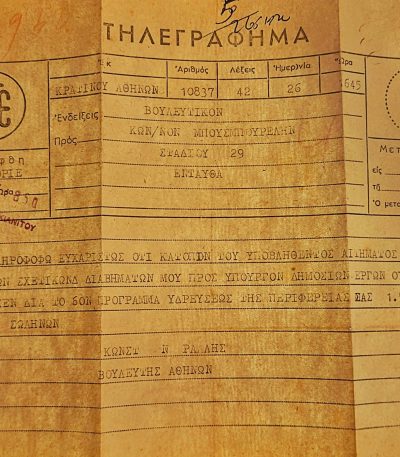 ΤΗΛΕΓΡΑΦΗΜΑ
Ἀριθμός Λέξεις Ἡμερ)νία Ὥρα
ΚΡΑΤΙΝΟΥ ΑΘΗΝΩΝ 10837 42 26 1645
Ἐνδείξεις ΒΟΥΛΕΥΤΙΚΟΝ
Πρός ΚΩΝ/ΝΟΝ ΜΠΟΥΣΜΠΟΥΡΕΛΗΝ
ΣΤΑΔΙΟΥ 29
ΕΝΤΑΥΘΑ
Μετ
είς
τῇ
Ὁ μετα
ΗΡΟΦΟΡΩ ΕΥΧΑΡΙΣΤΩΣ ΟΤΙ ΚΑΤΟΠΙΝ ΤΟΥ ΥΠΟΒΛΗΘΕΝΤΟΣ ΑΙΤΗΜΑΤΟΣ
ΩΝ ΣΧΕΤΙΚΩΝ ΔΙΑΒΗΜΑΤΩΝ ΜΟΥ ΠΡΟΣ ΥΠΟΥΡΓΟΝ ΔΗΜΟΣΙΩΝ ΕΡΓΩΝ ΟΥ
ΕΝ ΔΙΑ ΤΟ 6ΟΝ ΠΡΟΓΡΑΜΜΑ ΥΔΡΕΥΣΕΩΣ ΤΗΣ ΠΕΡΙΦΕΡΕΙΑΣ ΣΑΣ 1.
ΣΩΛΗΝΩΝ
ΚΩΝΣΤ Ν ΡΑΛΛΗΣ
ΒΟΥΛΕΥΤΗΣ ΑΘΗΝΩΝ